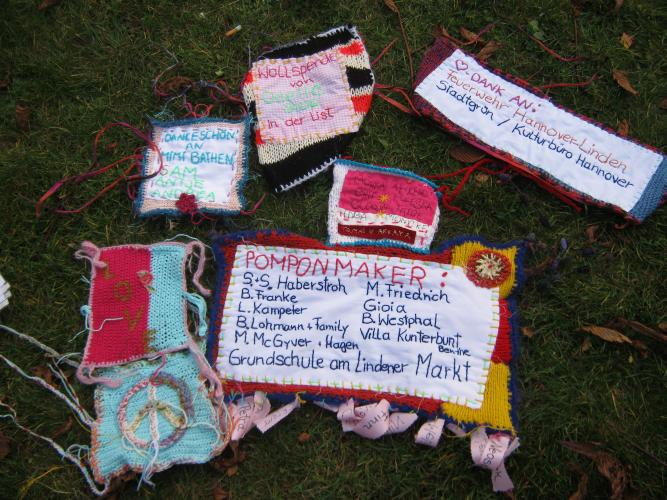 Wollspende
von
in der List
♡ DANK AN:
Feuerwehr Hannover-Linden
Stadtgrün / Kulturbüro Hannover
DANKESCHÖN
AN
MIMI BATHEN
SAM
ANTJE
LOVE
POMPONMAKER:
S.+S. Haberstroh
B. Franke
L. Kampeter
B. Lohmann + family
M. McGyver + Hagen
M. Friedrich
Gioia
B. Westphal
Villa Kunterbunt
Benthe
Grundschule am Lindener Markt